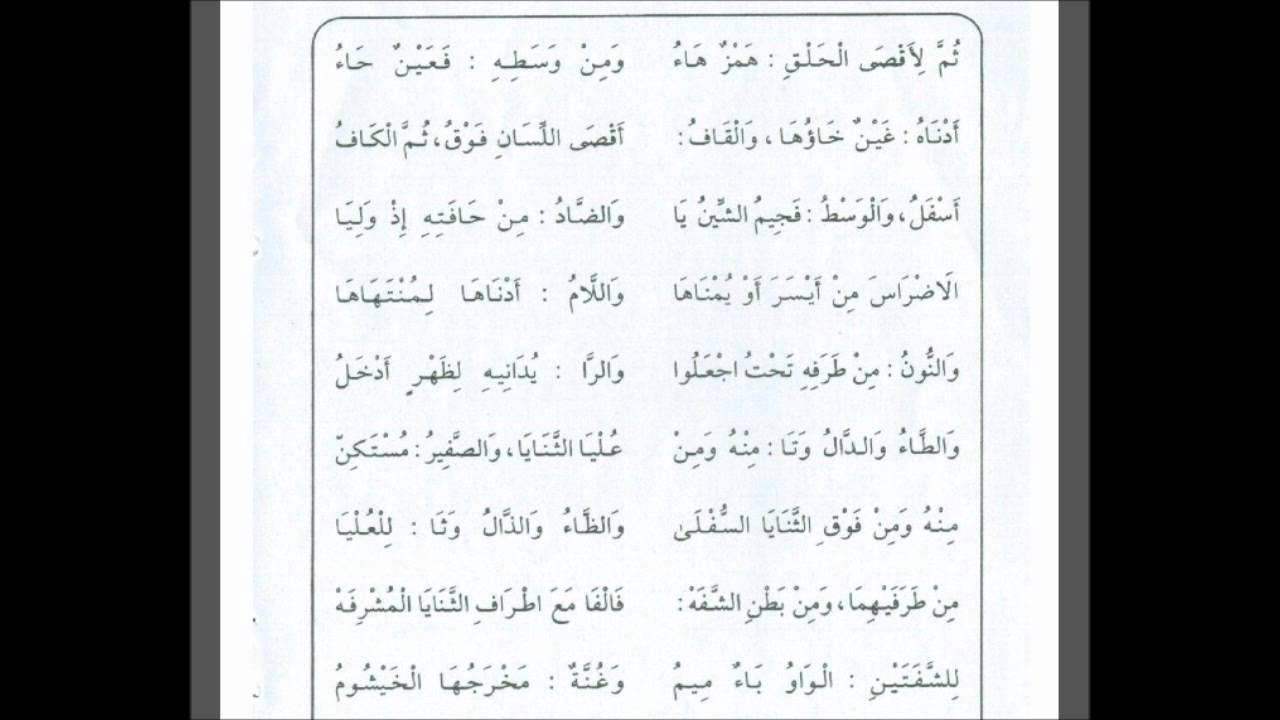 ثُمَّ لِأَقْصَى الْحَلْقِ : هَمْزٌ هَاءُ وَمِنْ وَسَطِهِ : فَعَيْنٌ حَاءُ
أَدْنَاهُ : غَيْنٌ خَاؤُهَا ، وَالْقَافُ : أَقْصَى اللِّسَانِ فَوْقُ، ثُمَّ الْكَافُ
أَسْفَلُ، وَالْوَسْطُ : فَجِيمُ الشِّينُ يَا وَالضَّادُ : مِنْ حَافَتِهِ إِذْ وَلِيَا
الَاضْرَاسَ مِنْ أَيْسَرَ أَوْ يُمْنَاهَا وَاللَّامُ : أَدْنَاهَا لِمُنْتَهَاهَا
وَالنُّونُ : مِنْ طَرَفِهِ تَحْتُ اجْعَلُوا وَالرَّا : يُدَانِيهِ لِظَهْرٍ أَدْخَلُ
وَالطَّاءُ وَالدَّالُ وَتَا : مِنْهُ وَمِنْ عُلْيَا الثَّنَايَا، وَالصَّفِيرُ : مُسْتَكِنّ
مِنْهُ وَمِنْ فَوْقِ الثَّنَايَا السُّفْلَىٰ وَالظَّاءُ وَالذَّالُ وَثَا : لِلْعُلْيَا
مِنْ طَرَفَيْهِمَا، وَمِنْ بَطْنِ الشَّفَهْ : فَالْفَا مَعَ اطْرَافِ الثَّنَايَا الْمُشْرِفَهْ
لِلشَّفَتَيْنِ : الْوَاوُ بَاءٌ مِيمُ وَغُنَّةٌ : مَخْرَجُهَا الْخَيْشُومُ